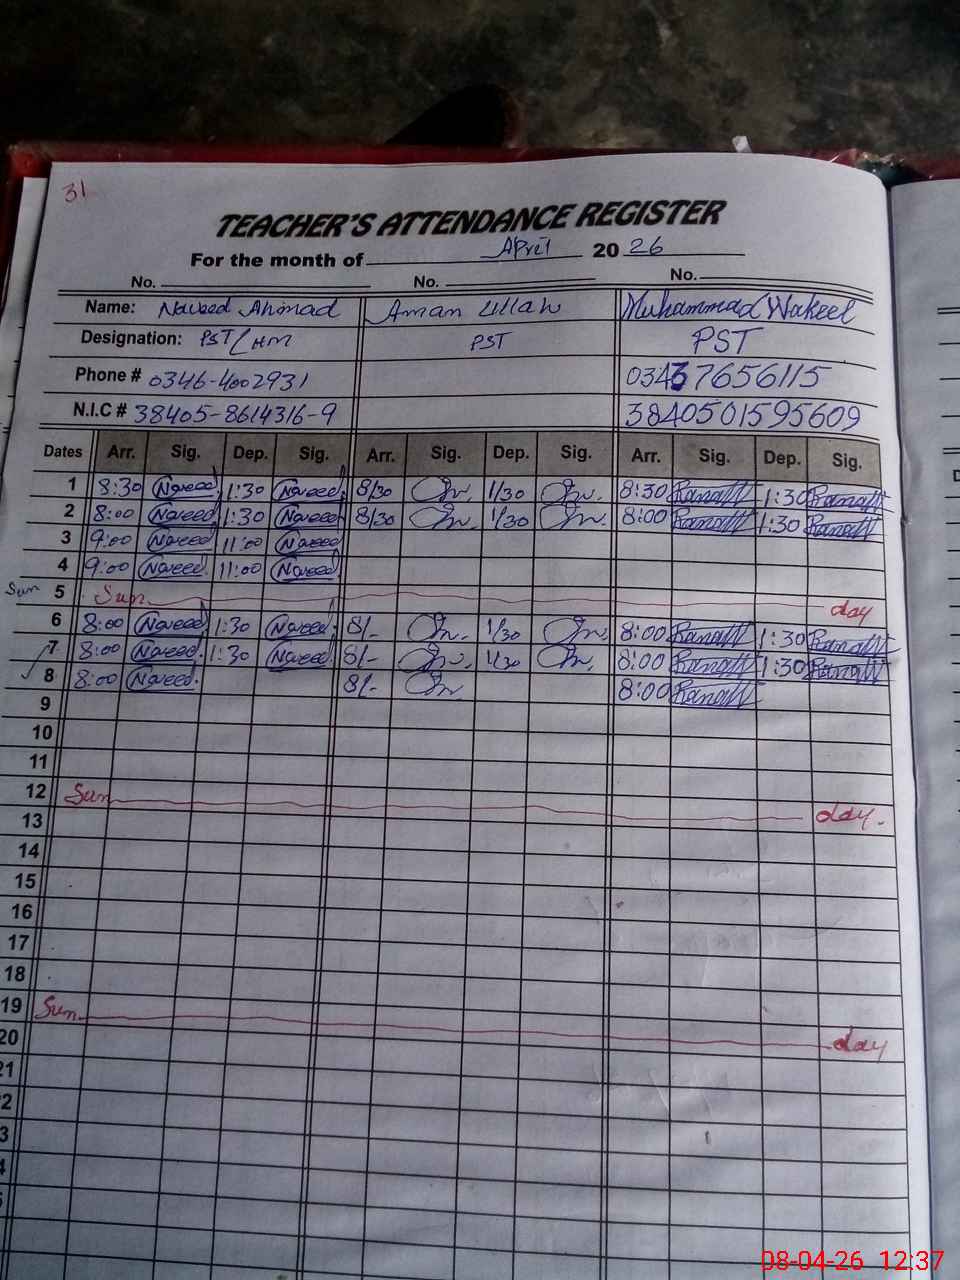 31
TEACHER'S ATTENDANCE REGISTER
For the month of April 20 26
No. No. No.
Name: Naveed Ahmad Aman Ullah Muhammad Wakeel
Designation: PST/HM PST PST
Phone # 0346-4002931 03437656115
N.I.C # 38405-8614316-9 3840501595609
Dates Arr. Sig. Dep. Sig. Arr. Sig. Dep. Sig. Arr. Sig. Dep. Sig.
1 8:30 Naveed 1:30 Naveed 8/30 1/30 8:30 1:30
2 8:00 Naveed 1:30 Naveed 8/30 1/30 8:00 1:30
3 9:00 Naveed 11:00 Naveed
4 9:00 Naveed 11:00 Naveed
Sun 5 Sun day
6 8:00 Naveed 1:30 Naveed 8/- 1/30 8:00 1:30
7 8:00 Naveed 1:30 Naveed 8/- 1/30 8:00 1:30
8 8:00 Naveed 8/- 8:00
9
10
11
12 Sun day.
13
14
15
16
17
18
19 Sun day
20
21
2
3
08-04-26 12:37